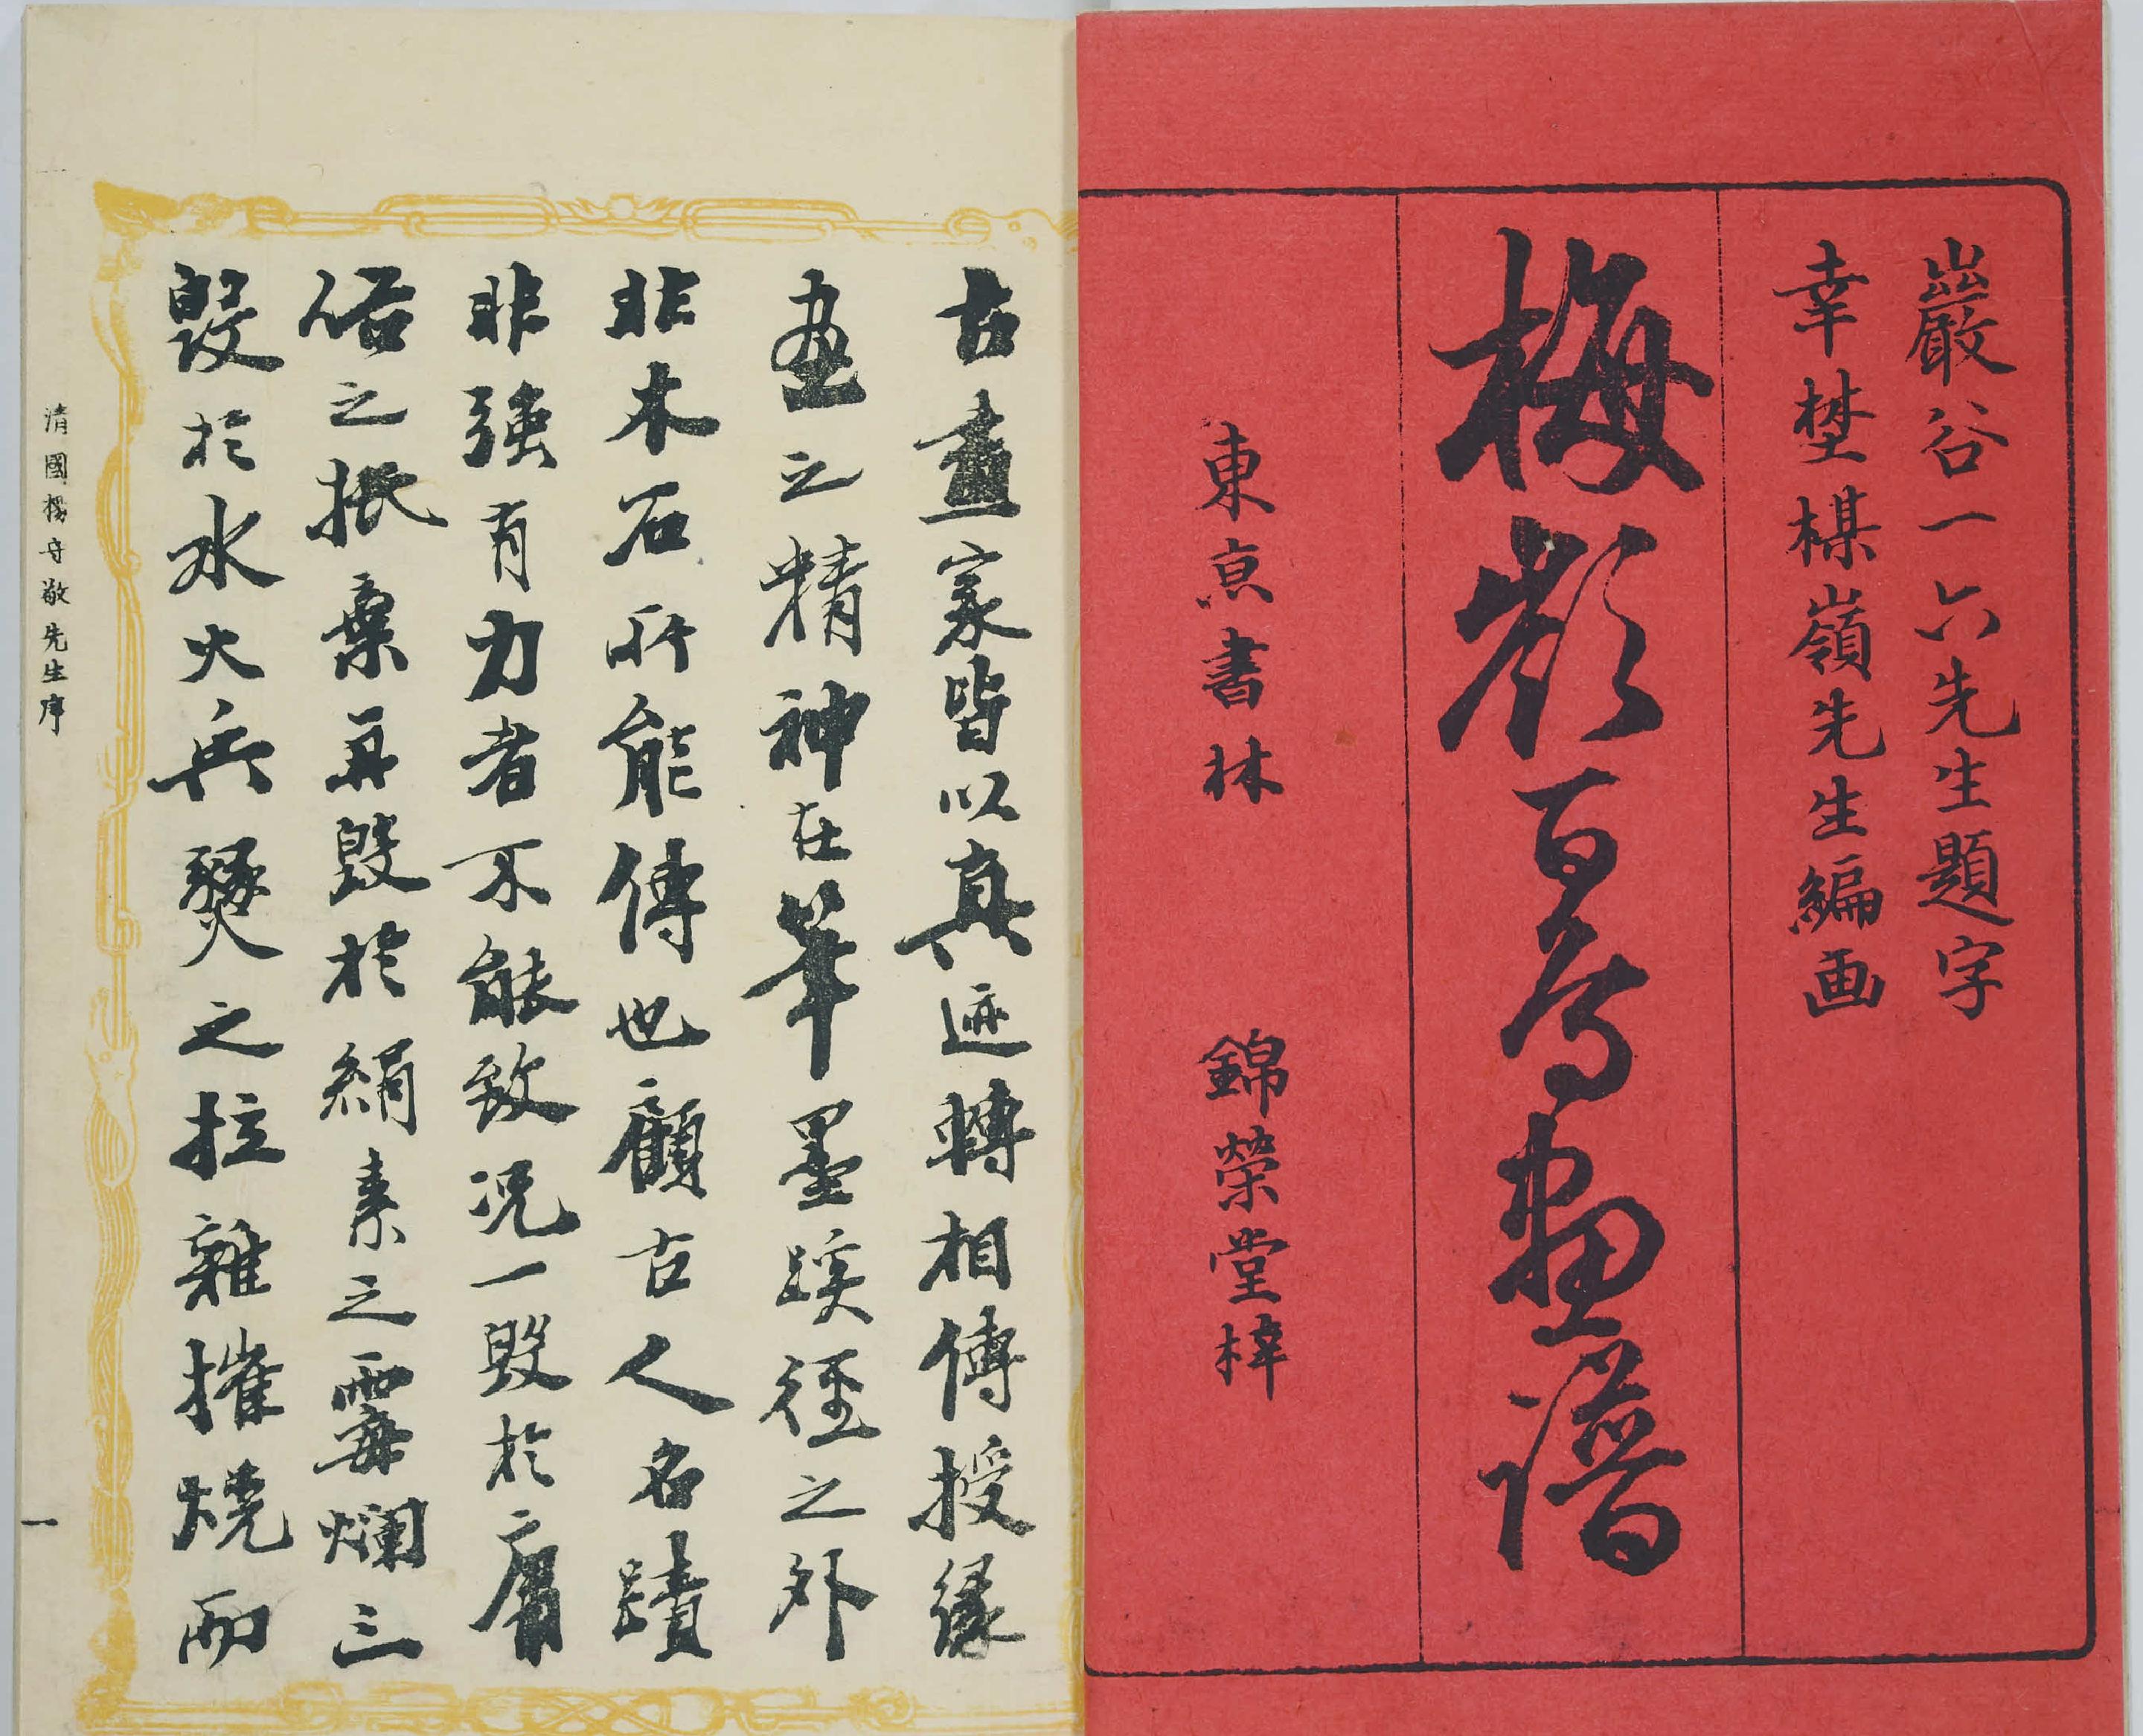 巖谷一六先生題字
幸埜楳嶺先生編画
梅嶺百鳥画譜
東京書林　錦榮堂梓
古畫家皆以真迹轉相傳授緣
畫之精神在筆墨蹊徑之外
非木石所能傳也顧古人名蹟
非強有力者不能致况一毀於庸
俗之抵棄再毀於絹素之霉爛三
毀於水火兵燹之拉雜摧燒而
清國楊守敬先生序
一